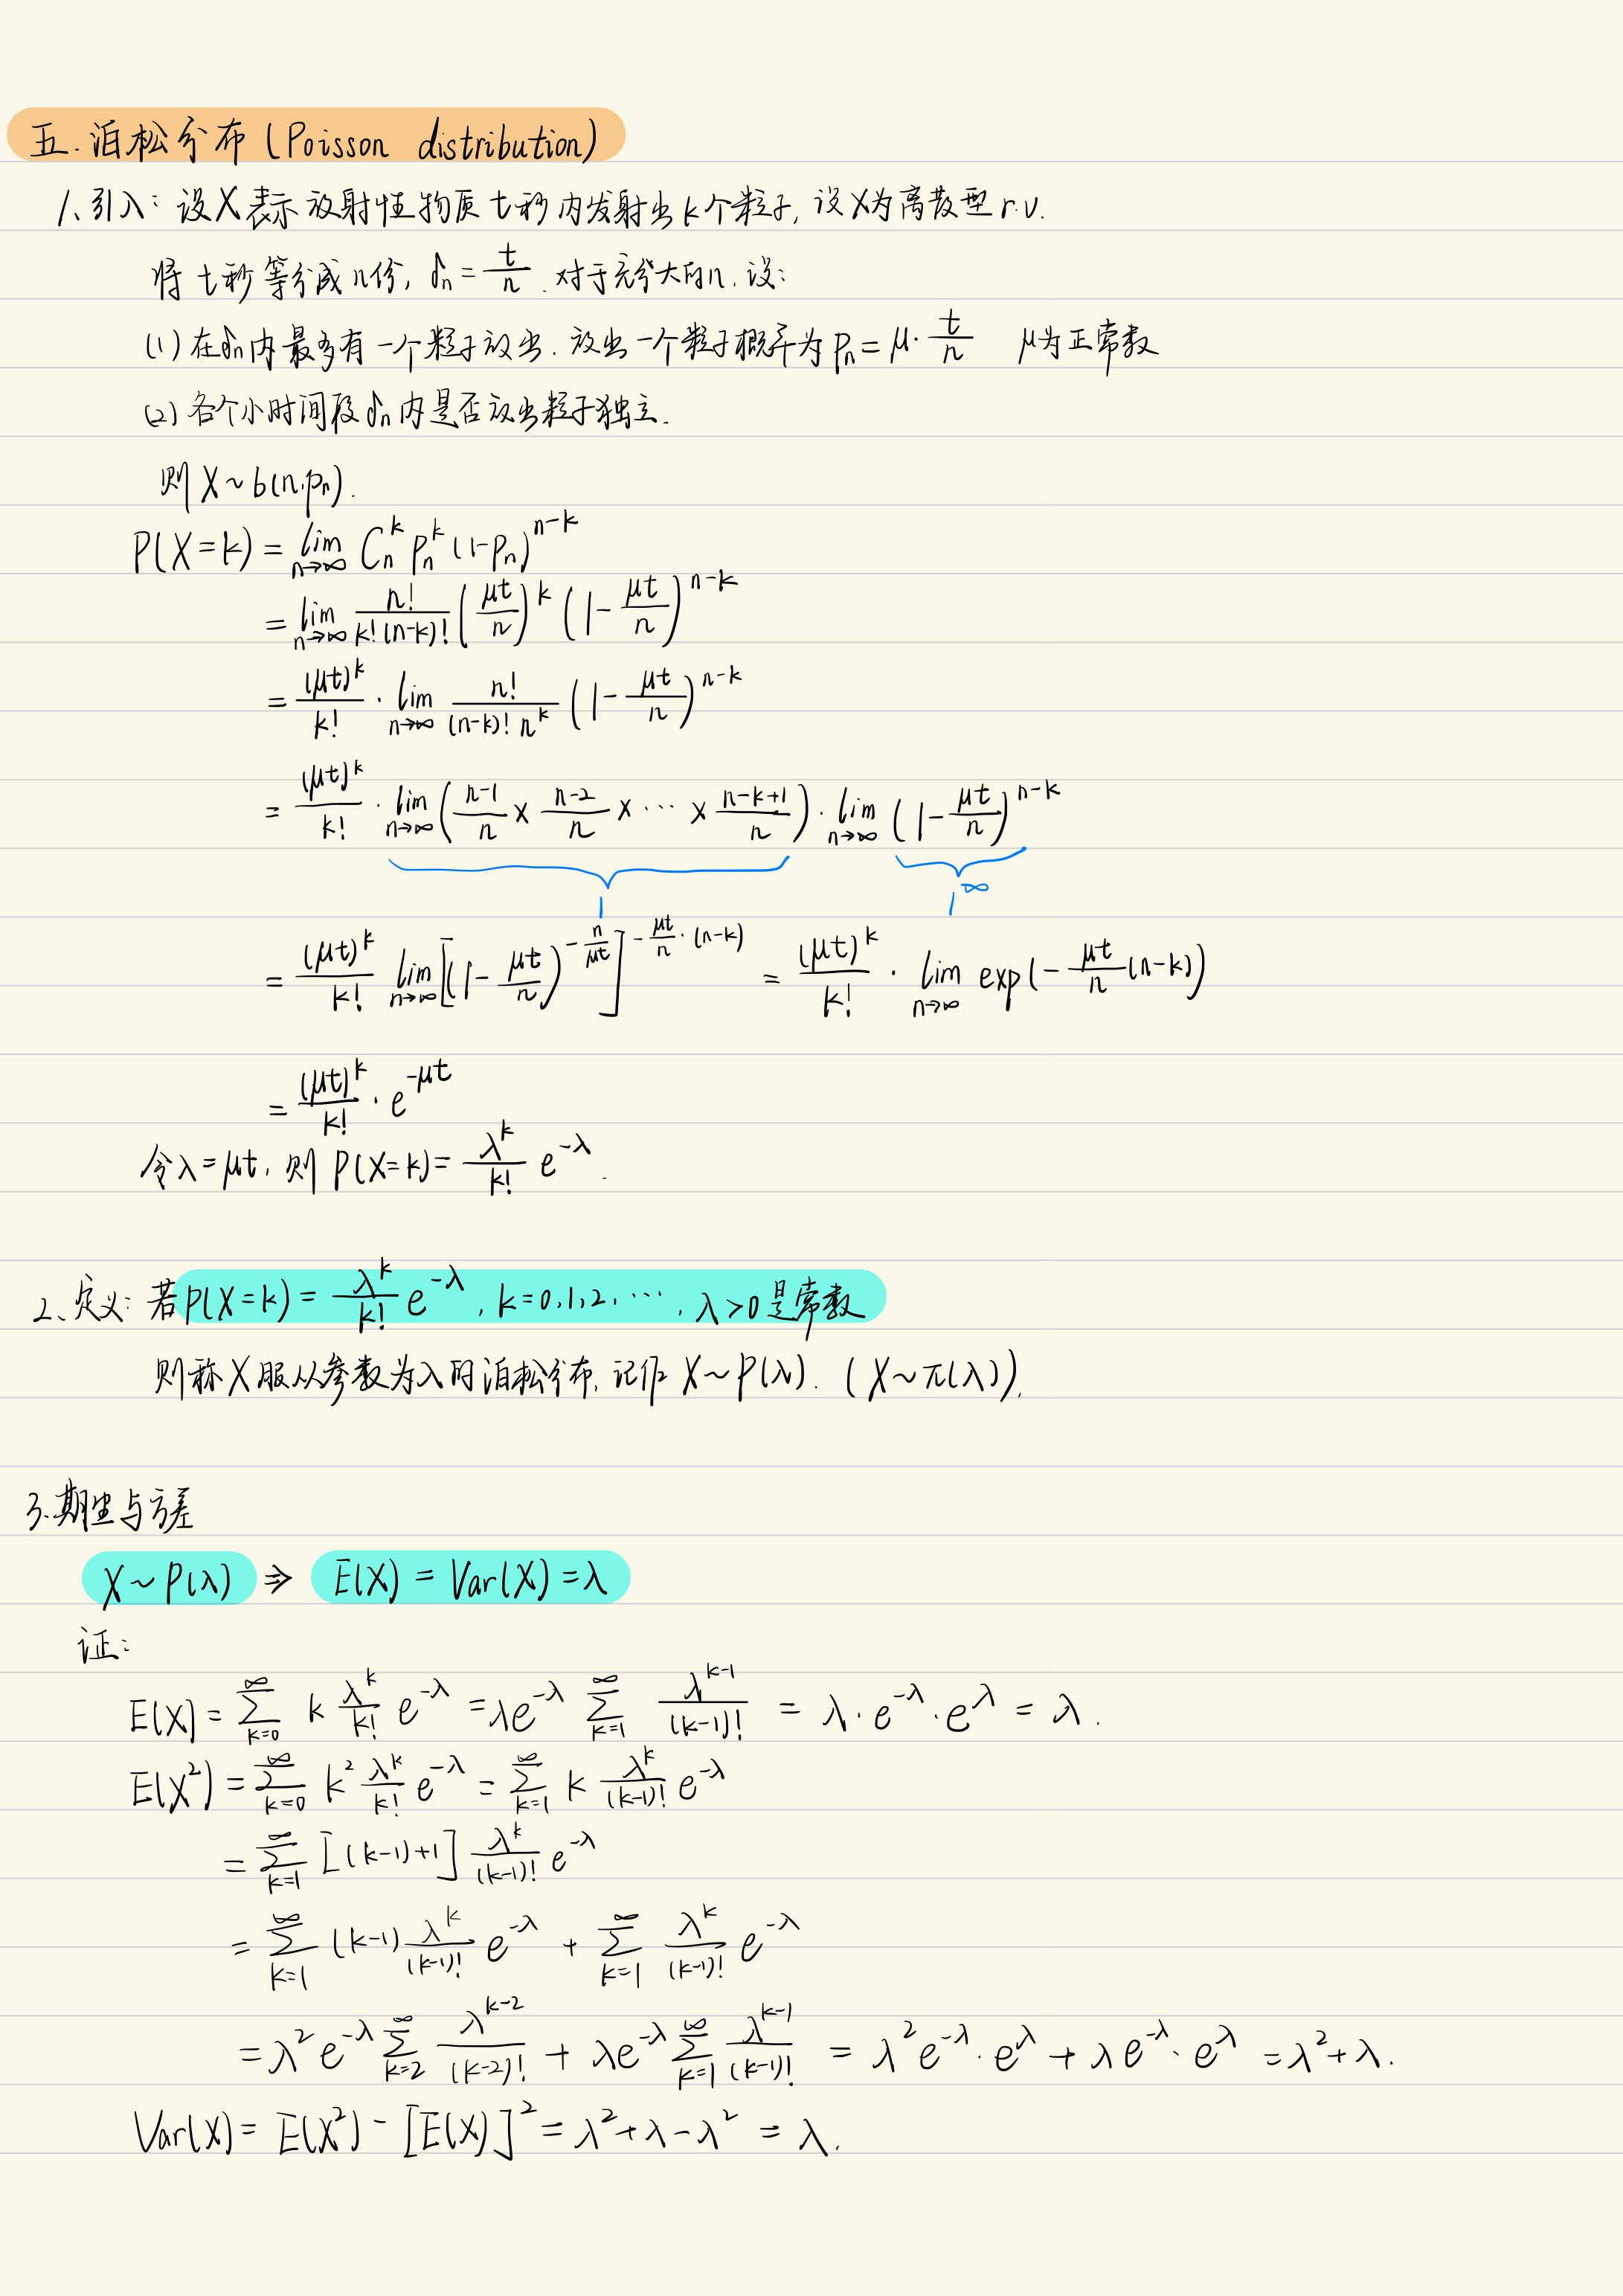 五.泊松分布(Poisson distribution)
1、引入：设X表示放射性物质t秒内发射出k个粒子,设X为离散型r.v.
将t秒等分成n份, δₙ = t/n. 对于充分大的n,设:
(1)在δₙ内最多有一个粒子放出.放出一个粒子概率为pₙ=μ·t/n μ为正常数
(2)各个小时间段δₙ内是否放出粒子独立.
则X~b(n,pₙ).
P(X=k) = lim_{n→∞} C_n^k p_n^k (1-p_n)^{n-k}
= lim_{n→∞} n!/(k!(n-k)!) (μt/n)^k (1-μt/n)^{n-k}
= (μt)^k/k! · lim_{n→∞} n!/((n-k)! n^k) (1-μt/n)^{n-k}
= (μt)^k/k! · lim_{n→∞} ((n-1)/n × (n-2)/n × ··· × (n-k+1)/n) · lim_{n→∞} (1-μt/n)^{n-k}
1 1^∞
= (μt)^k/k! lim_{n→∞} [(1-μt/n)^{-n/μt}]^{-μt/n·(n-k)} = (μt)^k/k! · lim_{n→∞} exp(-μt/n(n-k))
= (μt)^k/k! · e^{-μt}
令λ=μt, 则 P(X=k)= λ^k/k! e^{-λ}.
2、定义: 若P(X=k) = λ^k/k! e^{-λ}, k=0,1,2,···, λ>0是常数
则称X服从参数为λ的泊松分布,记作 X~P(λ). (X~π(λ)).
3.期望与方差
X~P(λ) ⇒ E(X) = Var(X) = λ
证:
E(X) = ∑_{k=0}^{∞} k λ^k/k! e^{-λ} = λe^{-λ} ∑_{k=1}^{∞} λ^{k-1}/(k-1)! = λ·e^{-λ}·e^λ = λ.
E(X²) = ∑_{k=0}^{∞} k² λ^k/k! e^{-λ} = ∑_{k=1}^{∞} k λ^k/(k-1)! e^{-λ}
= ∑_{k=1}^{∞} [(k-1)+1] λ^k/(k-1)! e^{-λ}
= ∑_{k=1}^{∞} (k-1) λ^k/(k-1)! e^{-λ} + ∑_{k=1}^{∞} λ^k/(k-1)! e^{-λ}
= λ² e^{-λ} ∑_{k=2}^{∞} λ^{k-2}/(k-2)! + λe^{-λ} ∑_{k=1}^{∞} λ^{k-1}/(k-1)! = λ²e^{-λ}·e^λ + λe^{-λ}·e^λ = λ²+λ.
Var(X) = E(X²) - [E(X)]² = λ²+λ-λ² = λ.